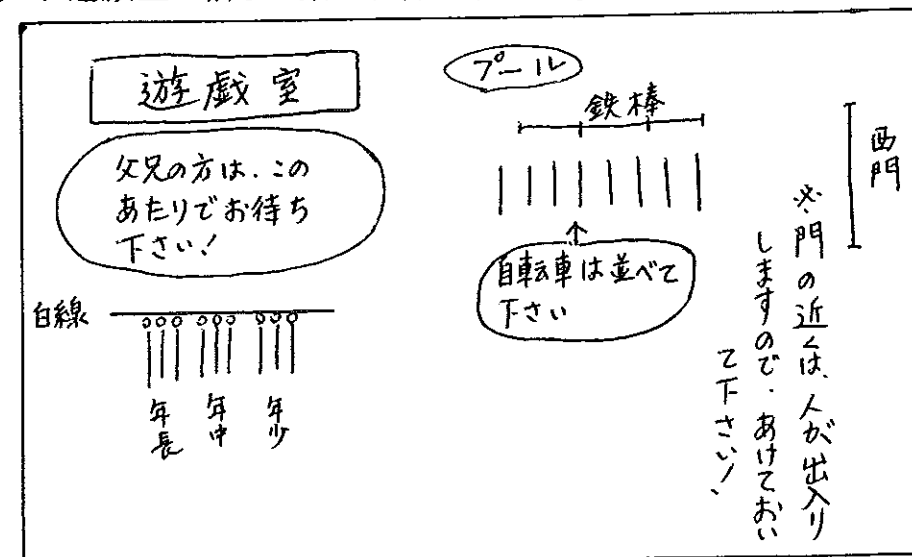 遊戯室
父兄の方は、この
あたりでお待ち
下さい!
白線
年長
年中
年少
プール
鉄棒
自転車は並べて
下さい
西門
※門の近くは、人が出入り
しますので、あけておい
て下さい!